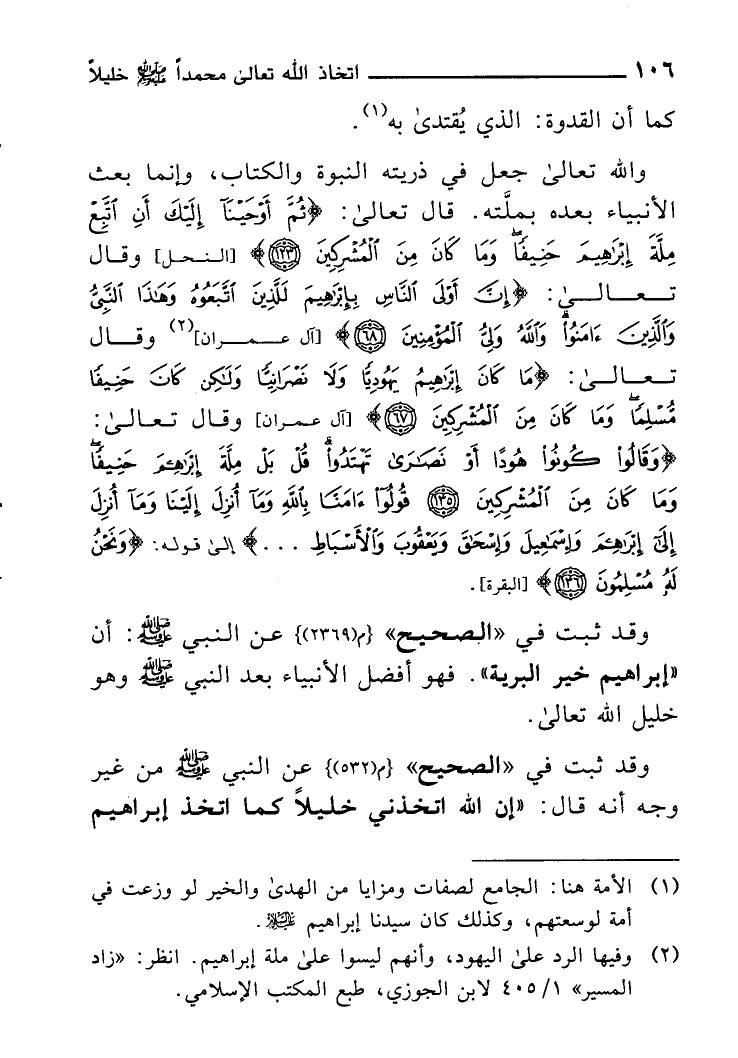 ١٠٦ ــــــــــــــــــــ اتخاذ الله تعالىٰ محمداً ﷺ خليلاً
كما أن القدوة: الذي يُقتدىٰ به(١).
والله تعالىٰ جعل في ذريته النبوة والكتاب، وإنما بعث
الأنبياء بعده بملَّته. قال تعالىٰ: ﴿ثُمَّ أَوْحَيْنَآ إِلَيْكَ أَنِ ٱتَّبِعْ
مِلَّةَ إِبْرَٰهِيمَ حَنِيفًاۖ وَمَا كَانَ مِنَ ٱلْمُشْرِكِينَ ١٢٣﴾ [النحل] وقال
تعـالـىٰ: ﴿إِنَّ أَوْلَى ٱلنَّاسِ بِإِبْرَٰهِيمَ لَلَّذِينَ ٱتَّبَعُوهُ وَهَٰذَا ٱلنَّبِىُّ
وَٱلَّذِينَ ءَامَنُوا۟ۗ وَٱللَّهُ وَلِىُّ ٱلْمُؤْمِنِينَ ٦٨﴾ [آل عـمـران](٢) وقـال
تعـالـىٰ: ﴿مَا كَانَ إِبْرَٰهِيمُ يَهُودِيًّا وَلَا نَصْرَانِيًّا وَلَٰكِن كَانَ حَنِيفًا
مُّسْلِمًاۖ وَمَا كَانَ مِنَ ٱلْمُشْرِكِينَ ٦٧﴾ [آل عمران] وقال تعالىٰ:
﴿وَقَالُوا۟ كُونُوا۟ هُودًا أَوْ نَصَٰرَىٰ تَهْتَدُوا۟ۗ قُلْ بَلْ مِلَّةَ إِبْرَٰهِـۧمَ حَنِيفًاۖ
وَمَا كَانَ مِنَ ٱلْمُشْرِكِينَ ١٣٥ قُولُوٓا۟ ءَامَنَّا بِٱللَّهِ وَمَآ أُنزِلَ إِلَيْنَا وَمَآ أُنزِلَ
إِلَىٰٓ إِبْرَٰهِـۧمَ وَإِسْمَٰعِيلَ وَإِسْحَٰقَ وَيَعْقُوبَ وَٱلْأَسْبَاطِ ...﴾ إلىٰ قوله: ﴿وَنَحْنُ
لَهُۥ مُسْلِمُونَ ١٣٦﴾ [البقرة].
وقد ثبت في «الصحيح» {م(٢٣٦٩)} عن النبي ﷺ: أن
«إبراهيم خير البرية». فهو أفضل الأنبياء بعد النبي ﷺ وهو
خليل الله تعالىٰ.
وقد ثبت في «الصحيح» {م(٥٣٢)} عن النبي ﷺ من غير
وجه أنه قال: «إن الله اتخذني خليلاً كما اتخذ إبراهيم
(١) الأمة هنا: الجامع لصفات ومزايا من الهدىٰ والخير لو وزعت في
أمة لوسعتهم، وكذلك كان سيدنا إبراهيم عليه السلام.
(٢) وفيها الرد علىٰ اليهود، وأنهم ليسوا علىٰ ملة إبراهيم. انظر: «زاد
المسير» ٤٠٥/١ لابن الجوزي، طبع المكتب الإسلامي.